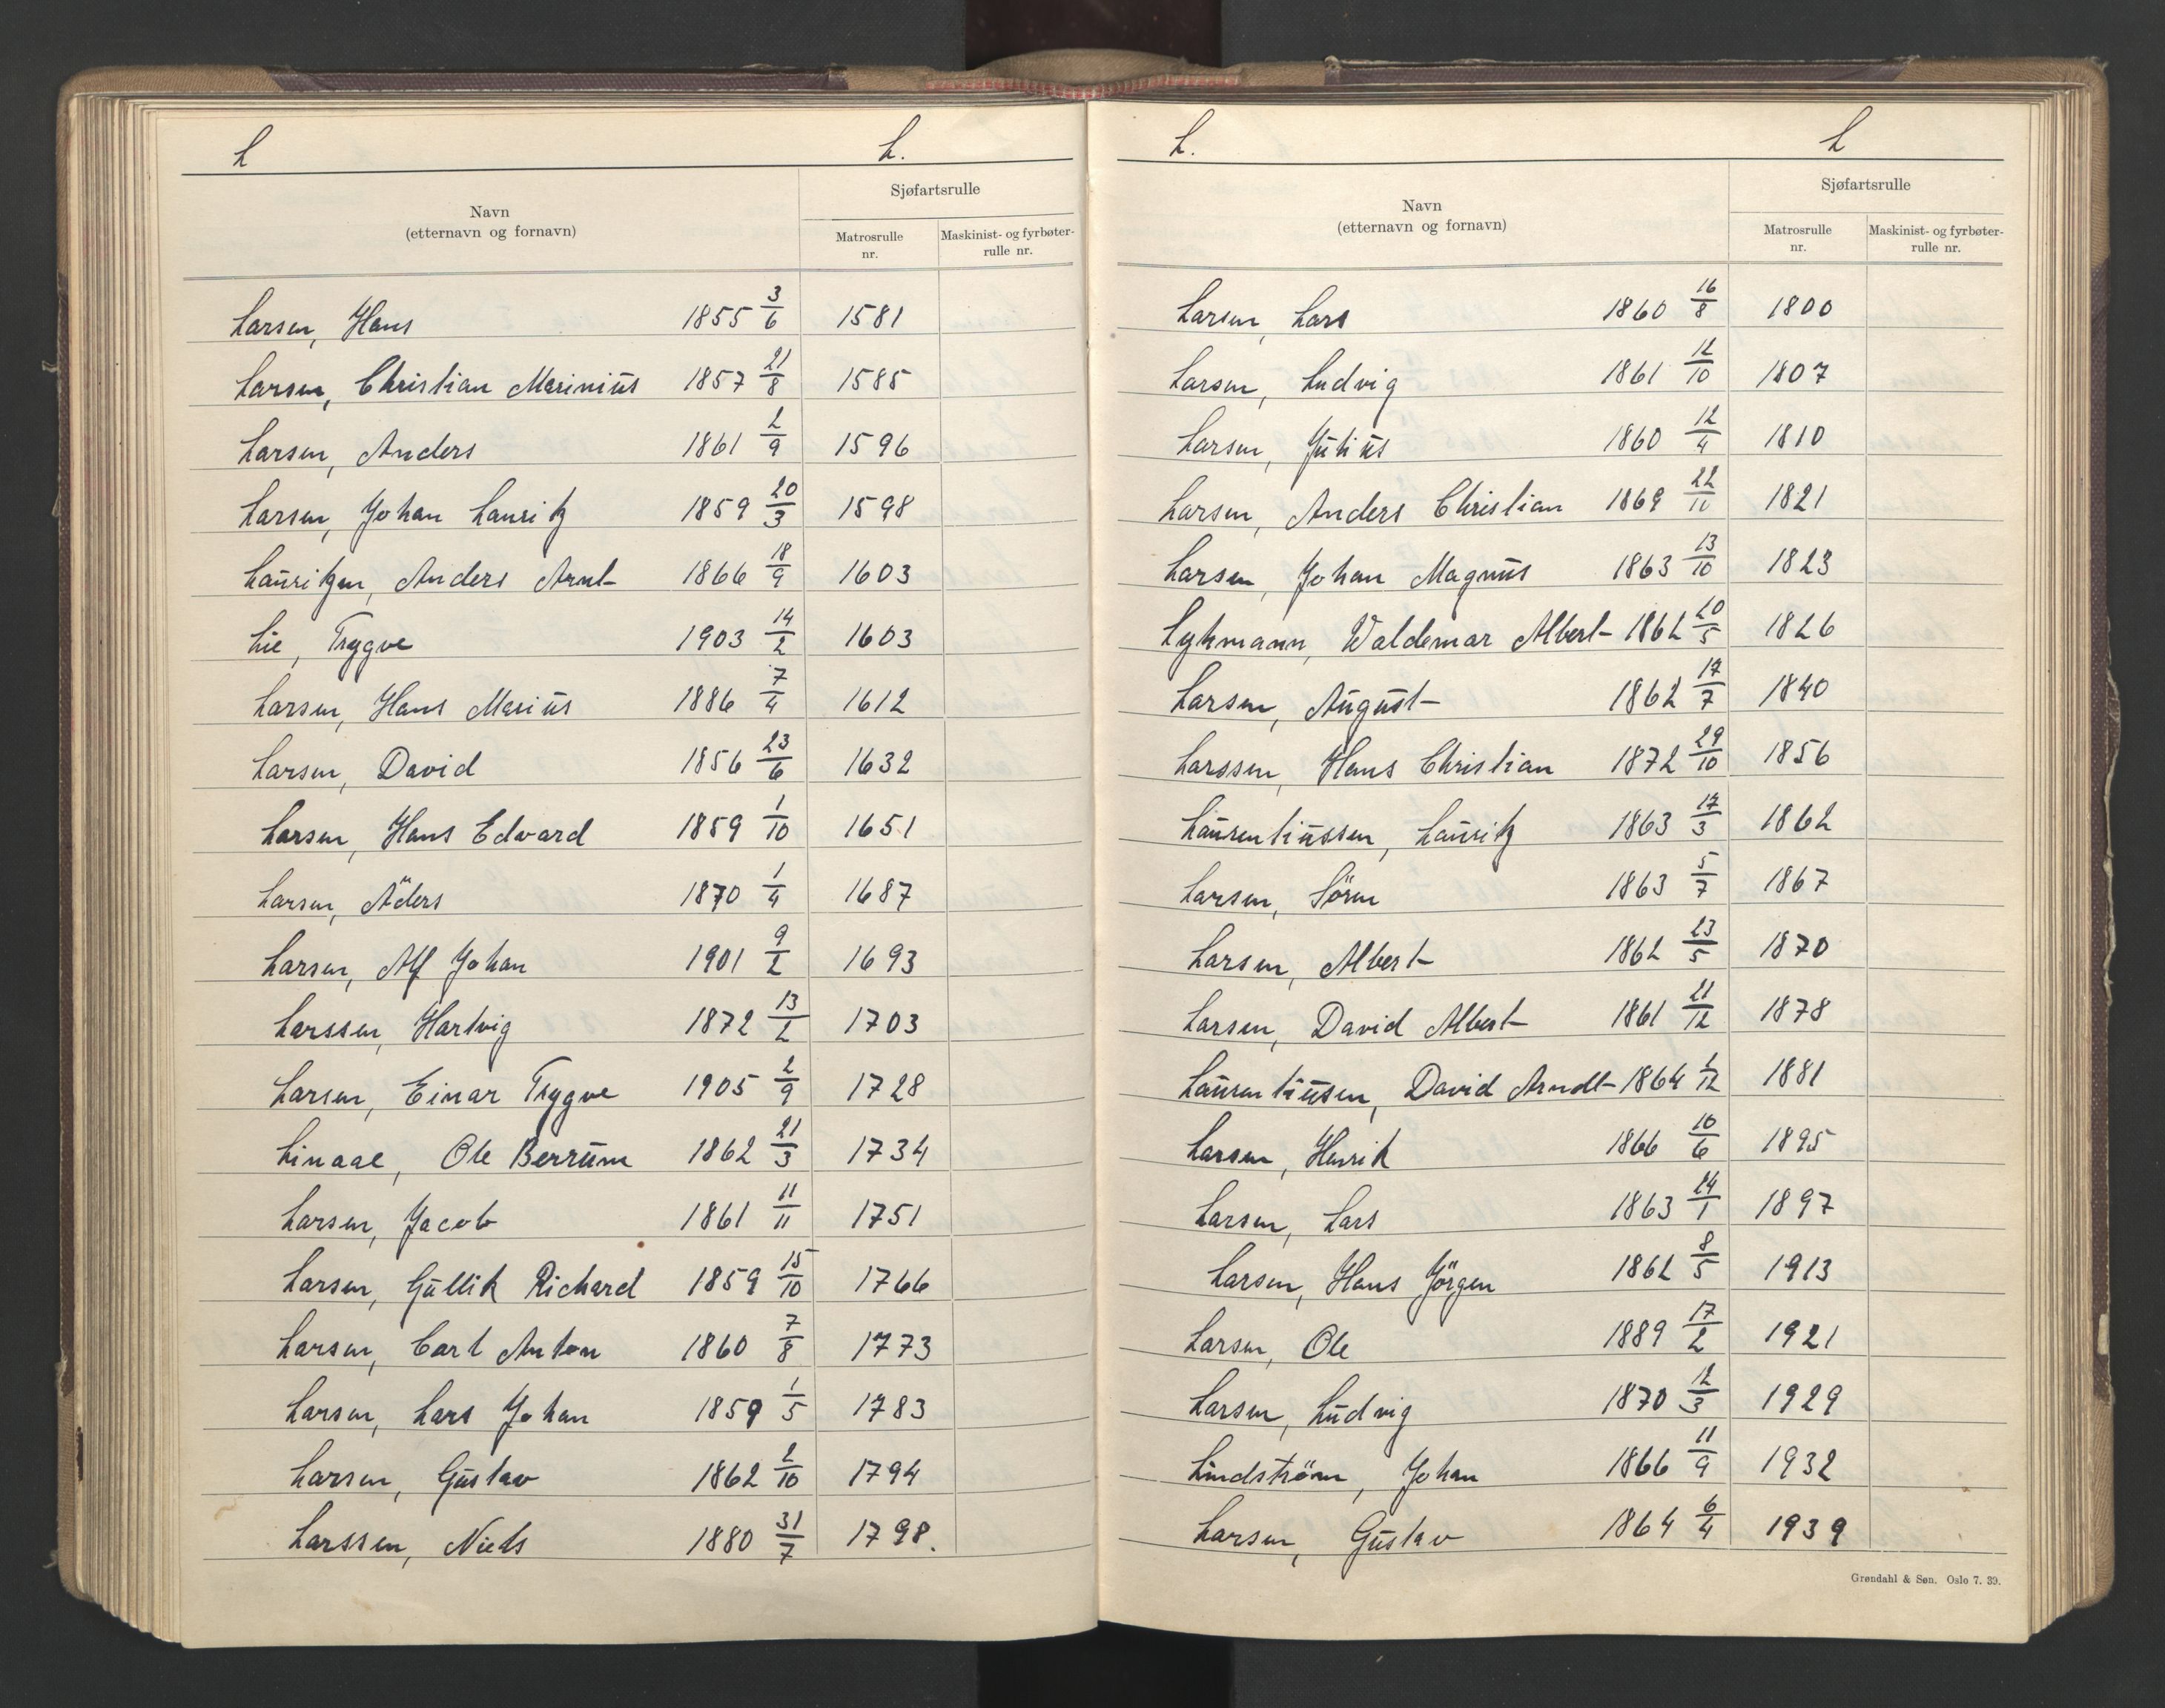 L L.
Sjøfartsrulle
Navn
(etternavn og fornavn)
Matrosrulle nr. Maskinist- og fyrbøter-rulle nr.
Larsen, Hans 1855 3/6 1581
Larsen, Christian Marinius 1857 21/8 1585
Larsen, Anders 1861 2/9 1596
Larsen, Johan Lauritz 1859 20/3 1598
Lauritzen, Anders Arnt 1866 18/9 1603
Lie, Trygve 1903 14/2 1603
Larsen, Hans Marius 1886 7/4 1612
Larsen, David 1856 23/6 1632
Larsen, Hans Edvard 1859 1/10 1651
Larsen, Äders 1870 1/4 1687
Larsen, Alf Johan 1901 9/2 1693
Larssen, Hartvig 1872 13/2 1703
Larsen, Einar Trygve 1905 2/9 1728
Linaae, Ole Berrum 1862 21/3 1734
Larsen, Jacob 1861 11/11 1751
Larsen, Gullik Richard 1859 15/10 1766
Larsen, Carl Anton 1860 7/8 1773
Larsen, Lars Johan 1859 1/5 1783
Larsen, Gustav 1862 2/10 1794
Larssen, Niels 1880 31/7 1798.
L. L
Sjøfartsrulle
Navn
(etternavn og fornavn)
Matrosrulle nr. Maskinist- og fyrbøter-rulle nr.
Larsen, Lars 1860 16/8 1800
Larsen, Ludvig 1861 12/10 1807
Larsen, Julius 1860 12/4 1810
Larsen, Anders Christian 1869 22/11 1821
Larsen, Johan Magnus 1863 13/10 1823
Lykmann, Waldemar Albert 1862 20/5 1826
Larsen, August 1862 17/7 1840
Larssen, Hans Christian 1872 29/10 1856
Laurentiussen, Lauritz 1863 17/3 1862
Larsen, Sören 1863 5/7 1867
Larsen, Albert 1862 23/5 1870
Larsen, David Albert 1861 21/12 1878
Laurentiusen, David Arndt 1864 1/12 1881
Larsen, Henrik 1866 10/6 1895
Larsen, Lars 1863 24/1 1897
Larsen, Hans Jörgen 1862 8/5 1913
Larsen, Ole 1889 17/2 1921
Larsen, Ludvig 1870 12/3 1929
Lindström, Johan 1866 11/9 1932
Larsen, Gustav 1864 6/4 1939
Grøndahl & Søn. Oslo 7. 39.